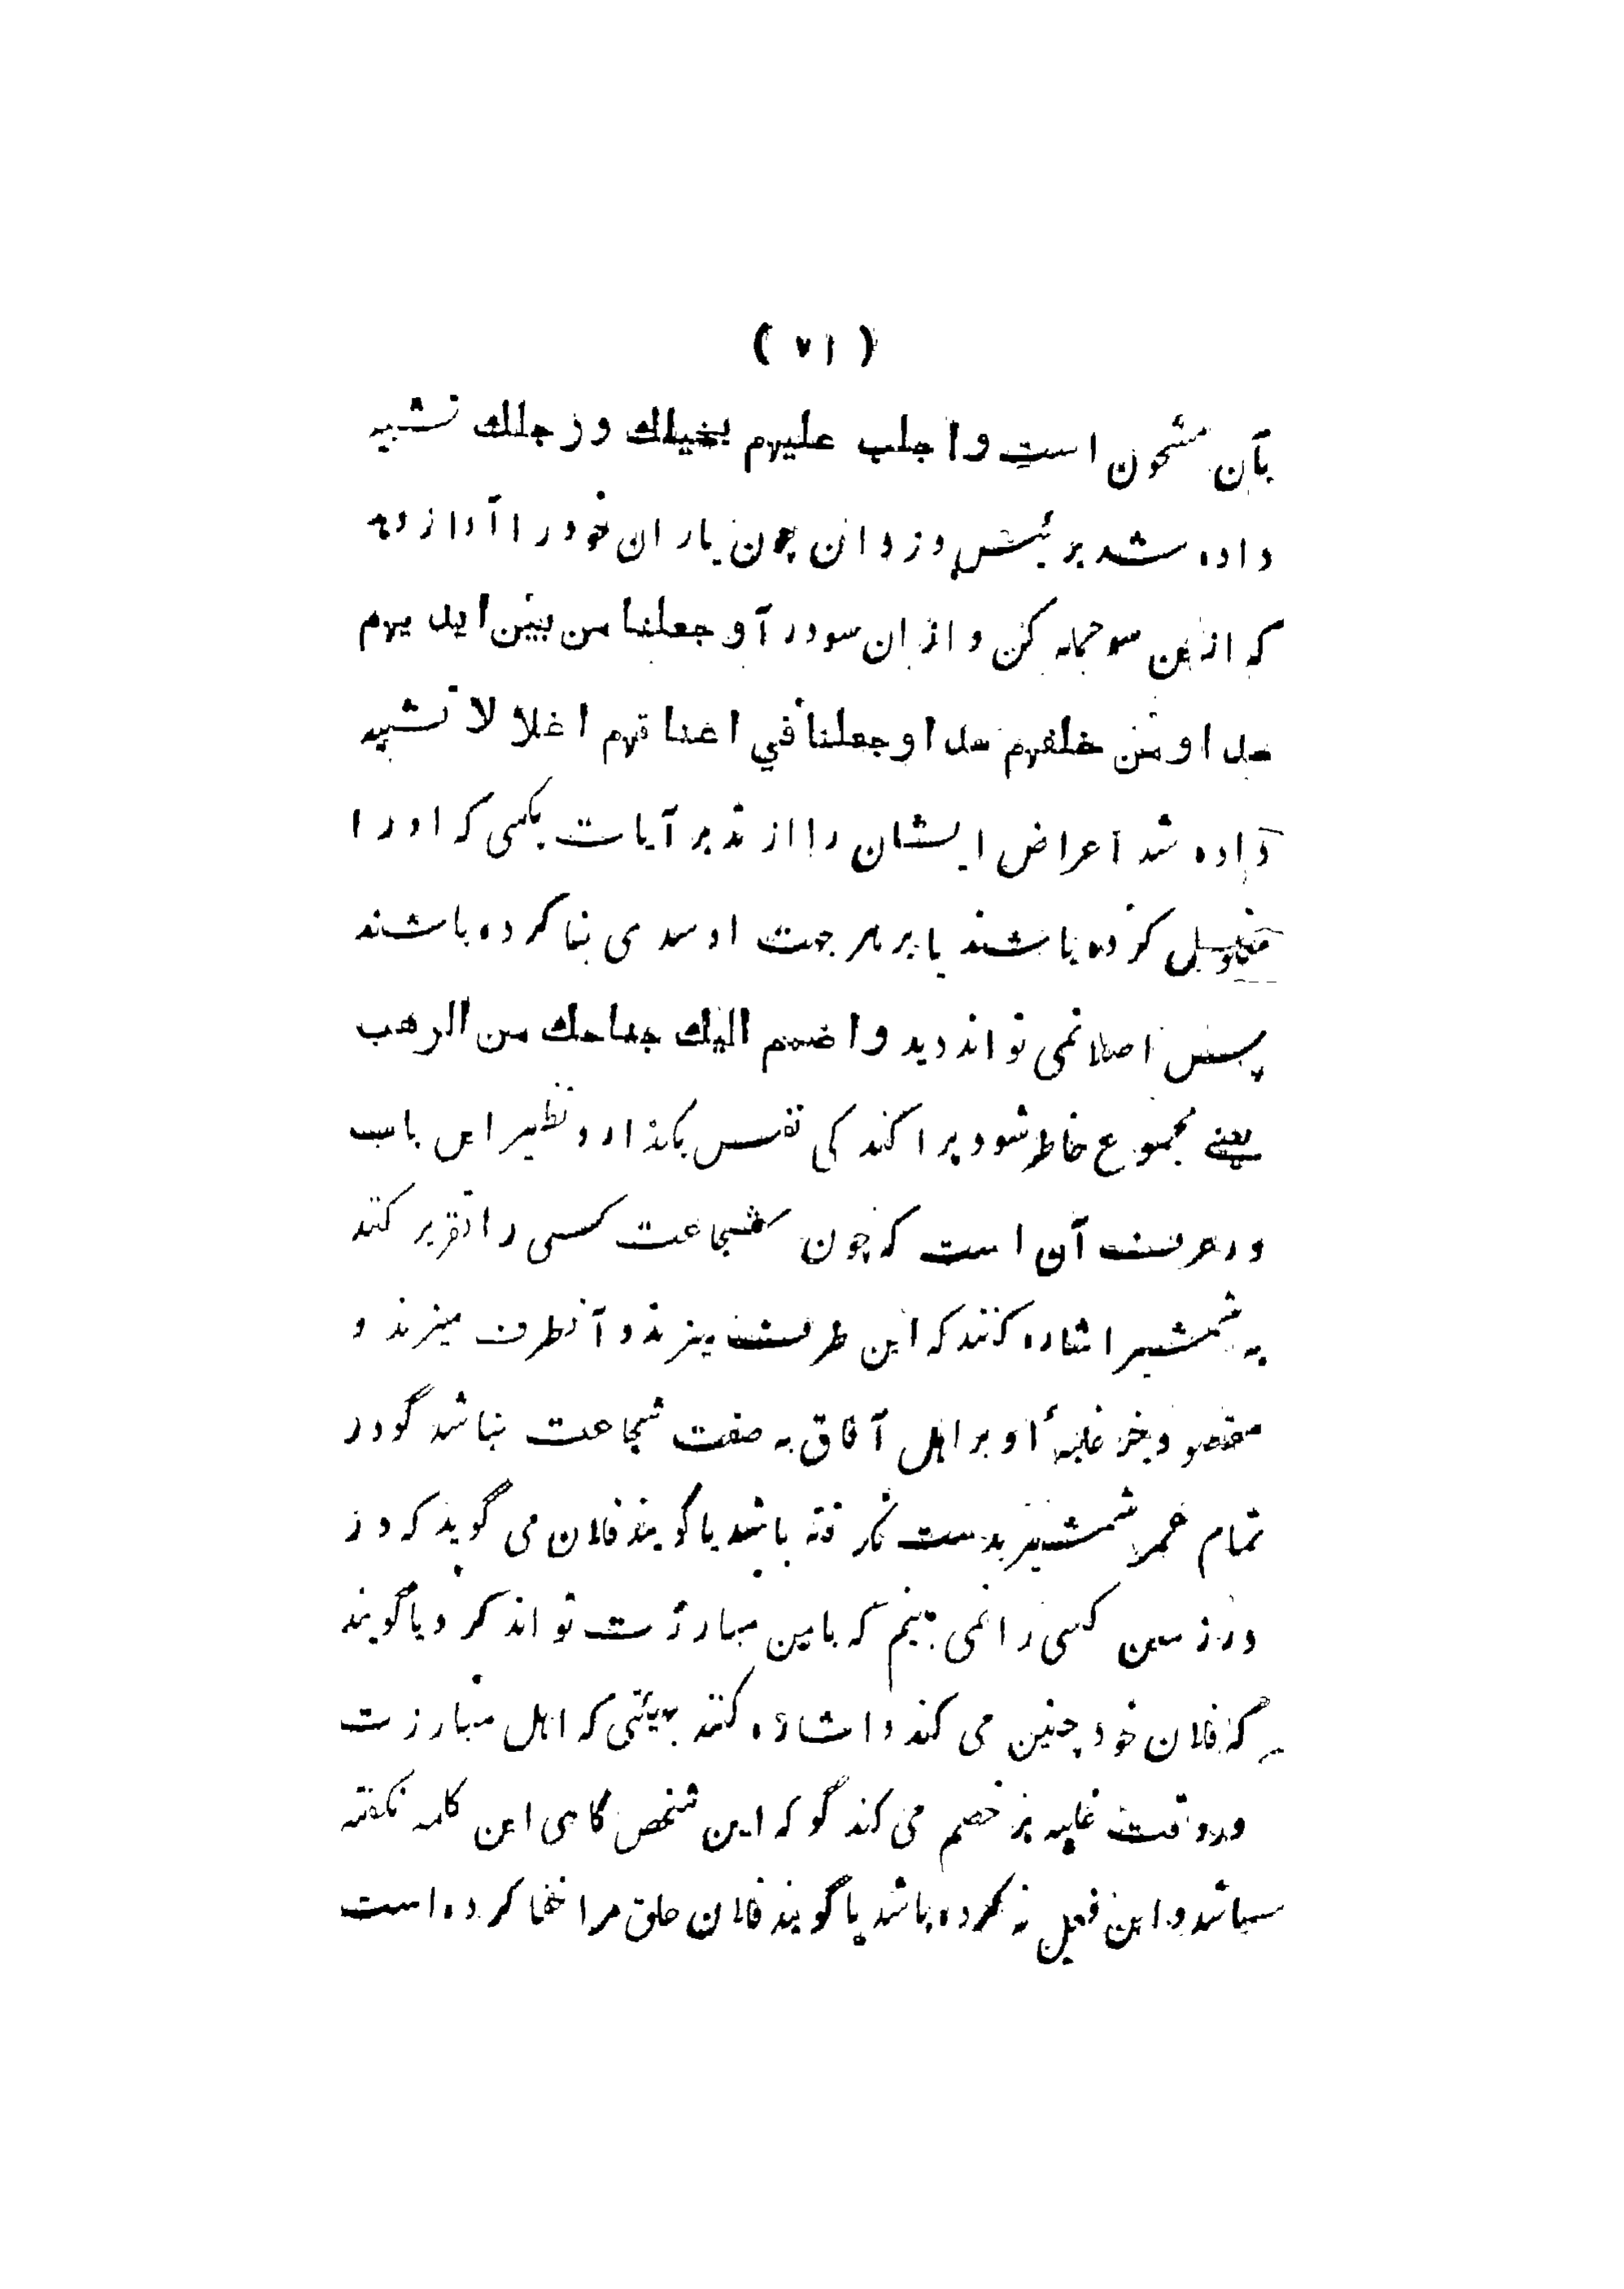 ( ۷۱ )
بآن مشحون است واجلب عليهم بخيلك ورجلك تشبیه
داده شد برئیس دزدان چون یاران خود را آواز دهد
که ازین سو حمله کن و ازان سو در آ وجعلنا من بين ايديهم
سدا ومن خلفهم سدا وجعلنا في اعناقهم اغلالا تشبیه
داده شد اعراض ایشان را از تدبر آیات بکسی که او را
مغلول کرده باشند یا بر هر جهت او سدی بنا کرده باشند
پس اصلا نمی تواند دید واضمم اليك جناحك من الرهب
یعنے مجموع خاطر شو و پراکندگی نفس بگذار و نظیر این باب
در عرف آن است که چون شجاعت کسی را تقریر کنند
به شمشیر اشاره کنند که این طرف میزند و آنطرف میزند و
مقصود بجز غلبۀ او بر اهل آفاق به صفت شجاعت نباشد گو در
تمام عمر شمشیر بدست نگرفته باشد یا گویند فلان می گوید که در
در زمین کسی را نمی بینم که با من مبارزت تواند کرد یا گویند
که فلان خود چنین می کند و اشاره کنند بهیئتی که اهل مبارزت
در وقت غلبه بر خصم می کند گو که این شخص گاهی این کلمه نگفته
باشد و این فعل نه کرده باشد یا گویند فلان حلق مرا خفا کرده است